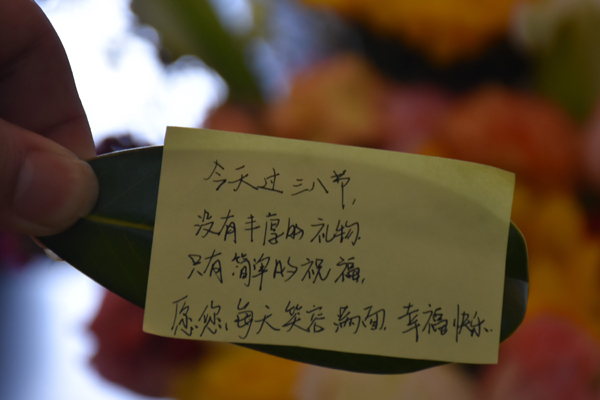 今天过三八节,
没有丰厚的礼物.
只有简单的祝福,
愿您每天笑容满面.幸福快乐.